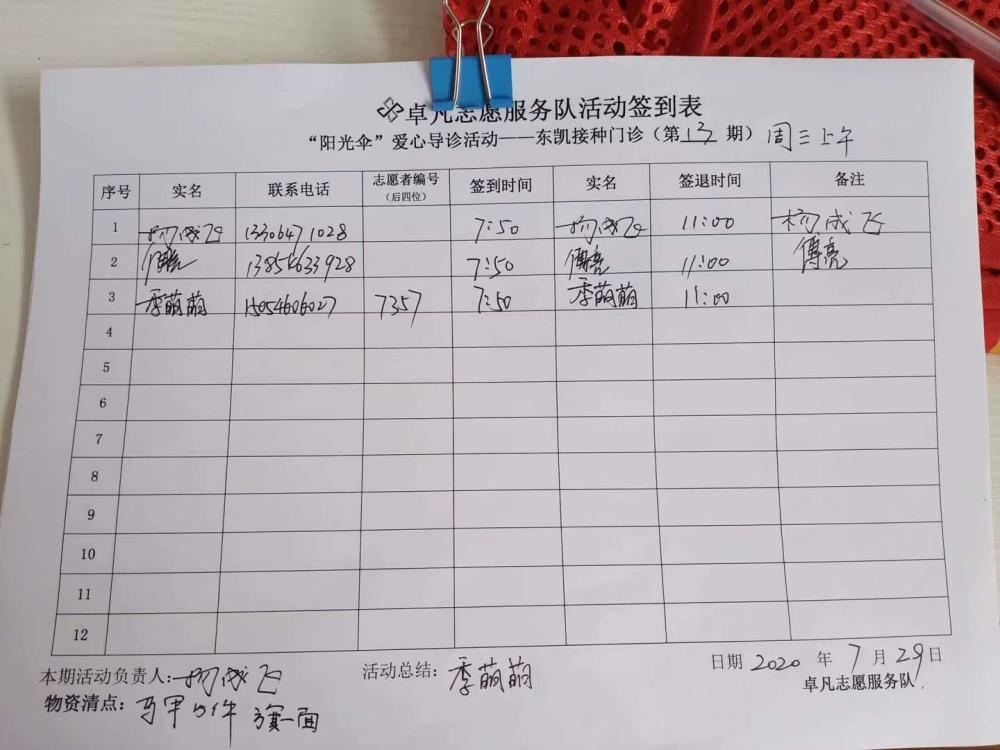 卓凡志愿服务队活动签到表
“阳光伞”爱心导诊活动——东凯接种门诊（第13期）周三上午
序号 实名 联系电话 志愿者编号（后四位） 签到时间 实名 签退时间 备注
1 杨成飞 13306471028 7:50 杨成飞 11:00 杨成飞
2 傅亮 13854633928 7:50 傅亮 11:00 傅亮
3 季萌萌 15054606027 7357 7:50 季萌萌 11:00
4
5
6
7
8
9
10
11
12
本期活动负责人：杨成飞 活动总结：季萌萌 日期 2020 年 7 月 29 日
物资清点：马甲 件 旗一面 卓凡志愿服务队